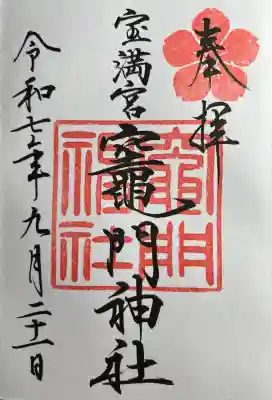 奉拝
宝満宮
竈門神社
竈門
神社
令和七年九月二十一日